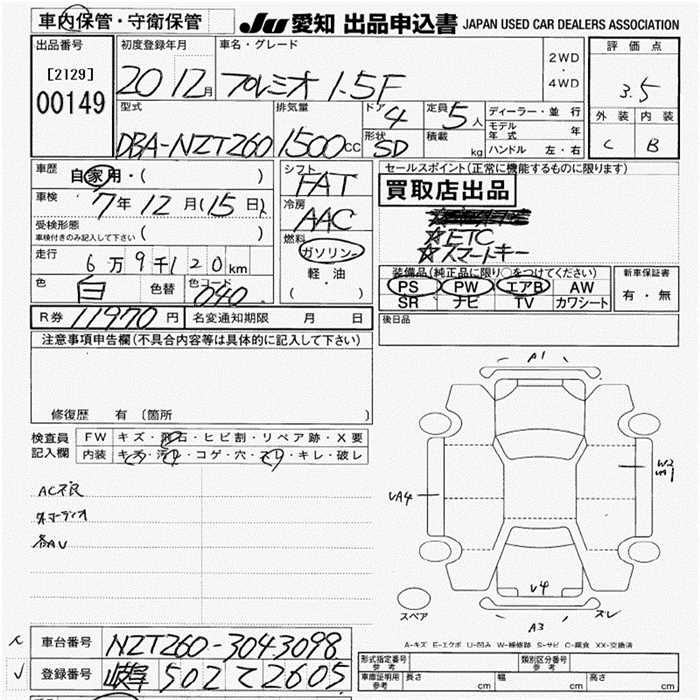 車内保管・守衛保管
JU 愛知 出品申込書 JAPAN USED CAR DEALERS ASSOCIATION
出品番号
[2129]
00149
初度登録年月
20 12月
車名・グレード
プレミオ 1.5F
2WD
・
4WD
評価点
3.5
外装 内装
C B
型式
DBA-NZT260
排気量
1500cc
ドア
4
形状
SD
定員
5人
積載
kg
ディーラー・並行
モデル年式 年
ハンドル 左・右
車歴
自家用・( )
車検
7年12月(15日)
受検形態
車検付きのみ記入して下さい ( )
走行
6万9千120km
色
白
色替
色コード
040
シフト
FAT
冷房
AAC
燃料
ガソリン
軽・油
( )
セールスポイント(正常に機能するものに限ります)
買取店出品
☆ETC
☆スマートキー
装備品(純正品に限り○をつけてください)
PS PW エアB AW
SR ナビ TV カワシート
新車保証書
有・無
R券 11970円
名変通知期限 月 日
後日品
注意事項申告欄(不具合内容等は具体的に記入して下さい)
修復歴 有 〔箇所 〕
検査員
記入欄
FW キズ・飛石・ヒビ割・リペア跡・X要
内装 キズ・汚れ・コゲ・穴・スレ・キレ・破レ
AC不良
外オーディオ
A1
W2
UA4
V4
A3
スレ
スペア
A-キズ E-エクボ U-凹み W-補修跡 S-サビ C-腐食 XX-交換済
車台番号 NZT260-3043098
登録番号 岐阜 502 て 2605
形式指定番号
参考
類別区分番号
参考
車庫証明用
参考
長さ cm
幅 cm
高さ cm